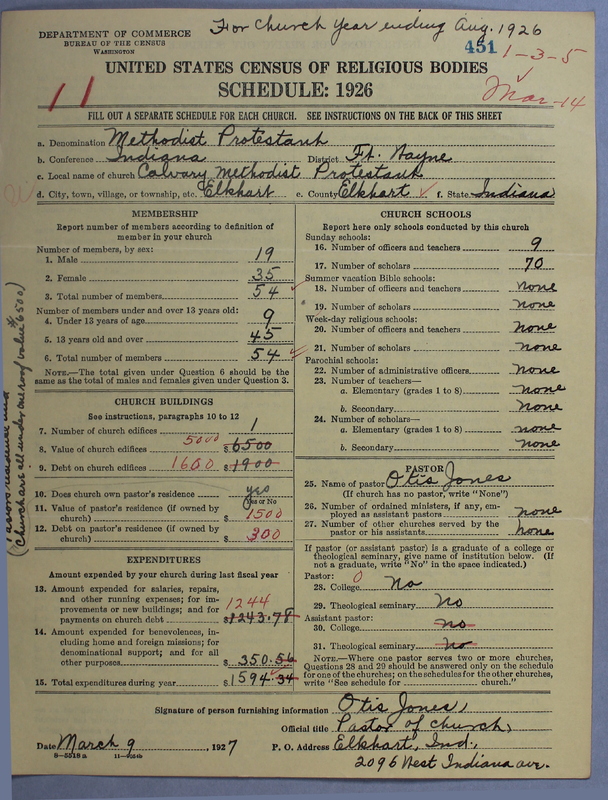 For Church Year ending Aug. 1926
DEPARTMENT OF COMMERCE
BUREAU OF THE CENSUS
WASHINGTON
451
1-3-5
UNITED STATES CENSUS OF RELIGIOUS BODIES
SCHEDULE: 1926
11
Mar-14
FILL OUT A SEPARATE SCHEDULE FOR EACH CHURCH. SEE INSTRUCTIONS ON THE BACK OF THIS SHEET
a. Denomination Methodist Protestant
b. Conference Indiana District Ft. Wayne
c. Local name of church Calvary Methodist Protestant
d. City, town, village, or township, etc. Elkhart e. County Elkhart f. State Indiana
MEMBERSHIP
Report number of members according to definition of
member in your church
Number of members, by sex:
1. Male 19
2. Female 35
3. Total number of members 54
Number of members under and over 13 years old:
4. Under 13 years of age 9
5. 13 years old and over 45
6. Total number of members 54
NOTE.—The total given under Question 6 should be the
same as the total of males and females given under Question 3.
CHURCH BUILDINGS
See instructions, paragraphs 10 to 12
7. Number of church edifices 1
8. Value of church edifices 5000 $6500
9. Debt on church edifices 1600 $1900
10. Does church own pastor's residence yes
Yes or No
11. Value of pastor's residence (if owned by
church) $ 1500
12. Debt on pastor's residence (if owned by
church) $ 300
EXPENDITURES
Amount expended by your church during last fiscal year
13. Amount expended for salaries, repairs,
and other running expenses; for im-
provements or new buildings; and for
payments on church debt 1244 $1243.78
14. Amount expended for benevolences, in-
cluding home and foreign missions; for
denominational support; and for all
other purposes $ 350.56
15. Total expenditures during year $1594.34
CHURCH SCHOOLS
Report here only schools conducted by this church
Sunday schools:
16. Number of officers and teachers 9
17. Number of scholars 70
Summer vacation Bible schools:
18. Number of officers and teachers none
19. Number of scholars none
Week-day religious schools:
20. Number of officers and teachers none
21. Number of scholars none
Parochial schools:
22. Number of administrative officers none
23. Number of teachers—
a. Elementary (grades 1 to 8) none
b. Secondary none
24. Number of scholars—
a. Elementary (grades 1 to 8) none
b. Secondary none
PASTOR
25. Name of pastor Otis Jones
(If church has no pastor, write "None")
26. Number of ordained ministers, if any, em-
ployed as assistant pastors none
27. Number of other churches served by the
pastor or his assistants none
If pastor (or assistant pastor) is a graduate of a college or
theological seminary, give name of institution below. (If
not a graduate, write "No" in the space indicated.)
Pastor: 0
28. College No
29. Theological seminary No
Assistant pastor:
30. College no
31. Theological seminary no
NOTE.—Where one pastor serves two or more churches,
Questions 28 and 29 should be answered only on the schedule
for one of the churches; on the schedules for the other churches,
write "See schedule for church."
Signature of person furnishing information Otis Jones,
Official title Pastor of church,
Date March 9, 1927 P. O. Address Elkhart, Ind.,
8—5518 a
2096 West Indiana ave.
Pastors residence and
(Church are all under one roof value $6500)